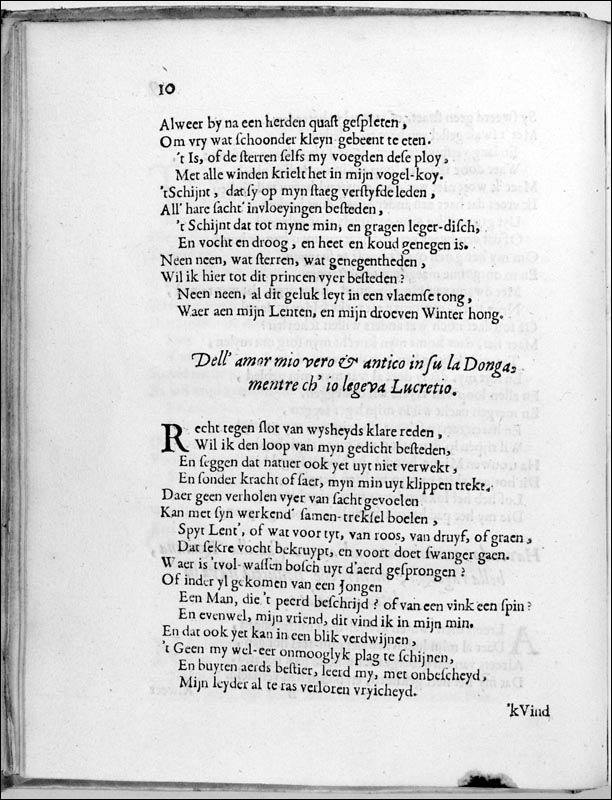 10
Alweer by na een herden quaſt geſpleten,
Om vry wat ſchoonder kleyn gebeent te eten.
't Is, of de ſterren ſelfs my voegden deſe ploy,
Met alle winden krielt het in mijn vogel-koy.
'tSchijnt, dat ſy op myn ſtaeg verſtyfde leden,
All' hare ſacht' invloeyingen beſteden,
't Schijnt dat tot myne min, en gragen leger-diſch,
En vocht en droog, en heet en koud genegen is.
Neen neen, wat ſterren, wat genegentheden,
Wil ik hier tot dit princen vyer beſteden?
Neen neen, al dit geluk leyt in een vlaemſe tong,
Waer aen mijn Lenten, en mijn droeven Winter hong.
Dell' amor mio vero & antico in ſu la Donga,
mentre ch' io legeva Lucretio.
Recht tegen ſlot van wysheyds klare reden,
Wil ik den loop van myn gedicht beſteden,
En ſeggen dat natuer ook yet uyt niet verwekt,
En ſonder kracht of ſaer, myn min uyt klippen trekt.
Daer geen verholen vyer van ſacht gevoelen
Kan met ſyn werkend' ſamen-trekſel boelen,
Spyt Lent', of wat voor tyt, van roos, van druyf, of graen,
Dat ſekre vocht bekruypt, en voort doet ſwanger gaen.
Waer is 'tvol-waſſen boſch uyt d'aerd geſprongen?
Of inder yl gekomen van een Jongen
Een Man, die 't peerd beſchrijd? of van een vink een ſpin?
En evenwel, mijn vriend, dit vind ik in mijn min.
En dat ook yet kan in een blik verdwijnen,
't Geen my wel-eer onmooglyk plag te ſchijnen,
En buyten aerds beſtier, leerd my, met onbeſcheyd,
Mijn leyder al te ras verloren vryicheyd.
'kVind